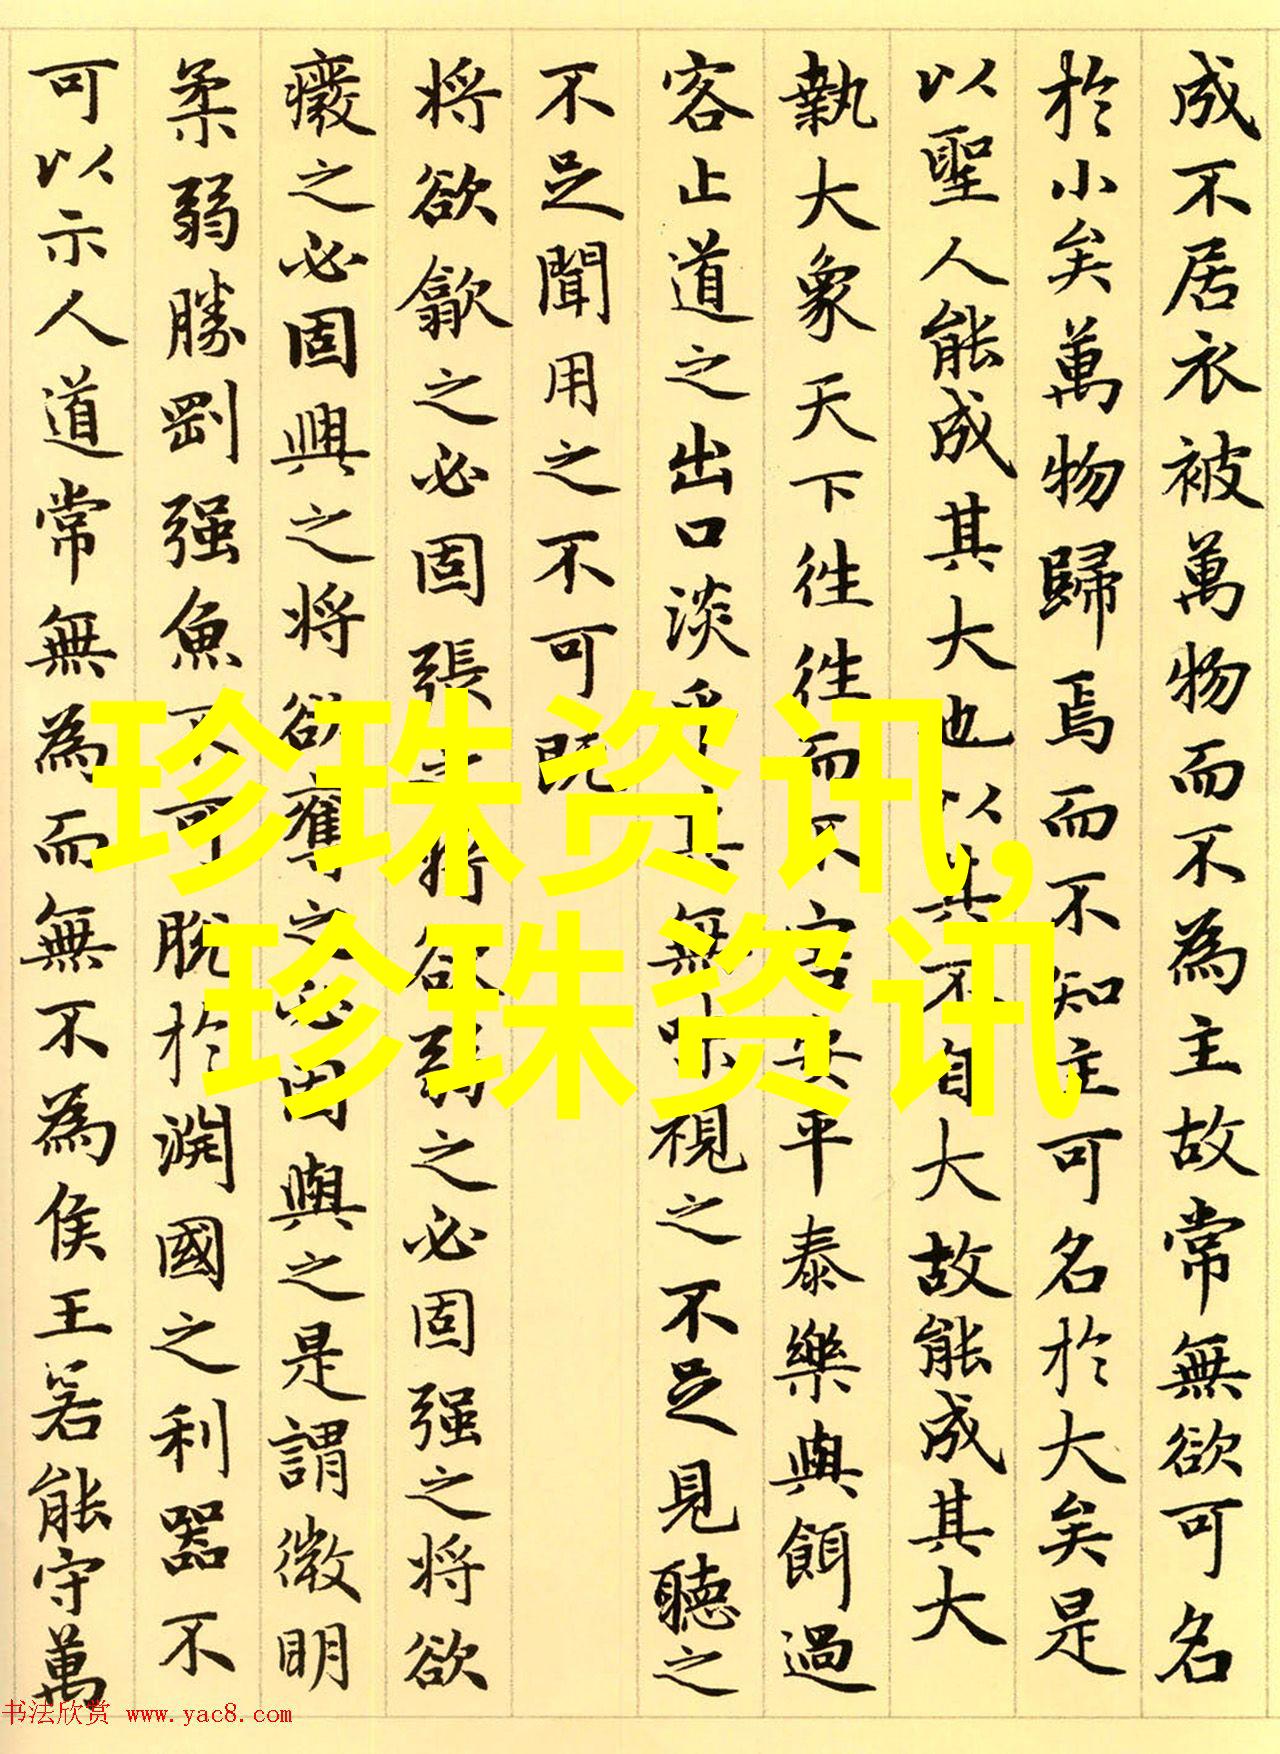 成不居衣被萬物而不為主故常無欲可名
於小矣萬物歸焉而不知主可名於大矣是
以聖人能成其大也以其不自大故能成其大
執大象天下往往而不害安平泰樂與餌過
客止道之出口淡乎其無味視之不足見聽之
不足聞用之不可既
将欲歙之必固張之将欲弱之必固强之将欲
癈之必固興之将欲奪之必固與之是謂微明
柔弱勝剛强魚不可脱於淵國之利器不
可以示人道常無為而無不為侯王若能守萬
珍珠资讯,
珍珠资讯
书法欣赏 www.yac8.com